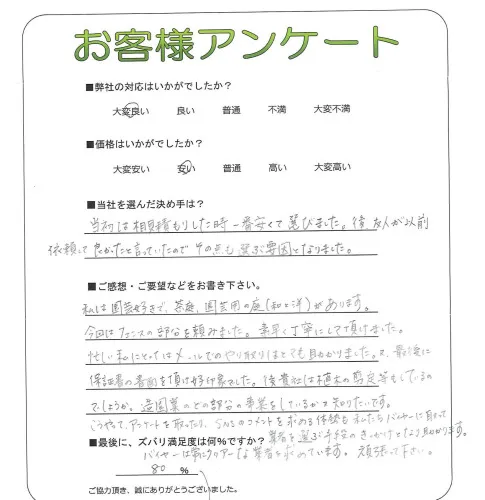 お客様アンケート
■弊社の対応はいかがでしたか?
大変良い 良い 普通 不満 大変不満
■価格はいかがでしたか?
大変安い 安い 普通 高い 大変高い
■当社を選んだ決め手は?
当初は相見積もりした時一番安くて選びました。後、友人が以前
依頼して良かったと言っていたのでその点も選ぶ要因となりました。
■ご感想・ご要望などをお書き下さい。
私は園芸好きで、菜庭、園芸用の庭(和と洋)があります。
今回はフェンスの部分を頼みました。素早く丁寧にして頂けました。
忙しい私にとってはメールでのやり取りはとても助かりました。又、最後に
保証書の書面を頂け好印象でした。後貴社は植木の剪定等もしているの
でしょうか。造園業のどの部分の事業をしているか知りたいです。
こうやってアンケートを取ったり、SNSのコメントを求める体勢も私たちバイヤーに取って
業者を選ぶ手段のきっかけとなり助かります。
■最後に、ズバリ満足度は何%ですか?
バイヤーは常にクリアーな業者を求めています。頑張って下さい。
80 %
ご協力頂き、誠にありがとうございました。